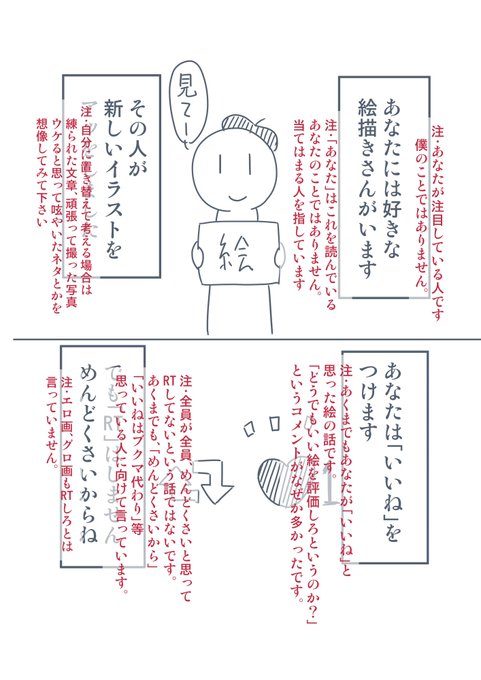 あなたには好きな
絵描きさんがいます
注・あなたが注目している人です
僕のことではありません。
注・「あなた」はこれを読んでいる
あなたのことではありません。
当てはまる人を指しています
見てー
絵
その人が
新しいイラストを
注・自分に置き替えて考える場合は
練られた文章、頑張って撮った写真
ウケると思って呟やいたネタとかを
想像してみて下さい
あなたは「いいね」を
つけます
注・あくまでもあなたが「いいね」と
思った絵の話です。
「どうでもいい絵を評価しろというのか？」
というコメントがなぜか多かったです。
1
でも「RT」はしません
めんどくさいからね
注・全員が全員、めんどくさいと思って
RTしてないという話ではないです。
あくまでも、「めんどくさいから」
「いいねはブクマ代わり」等
思っている人に向けて言っています。
注・エロ画、グロ画もRTしろとは
言っていません。